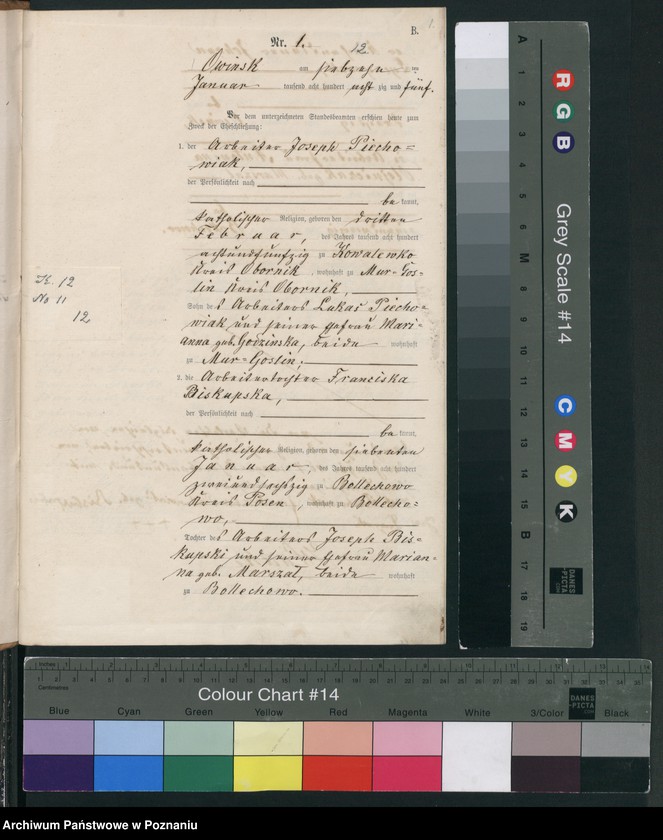 B.
Nr. 1.
12
Owinsk am siebzehn ten
Januar tausend acht hundert acht zig und fünf.
Vor dem unterzeichneten Standesbeamten erschien heute zum
Zweck der Eheschließung:
1. der Arbeiter Joseph Piecho=
wiak,
der Persönlichkeit nach
be kannt,
katholischer Religion, geboren den dritten
Februar, des Jahres tausend acht hundert
achtundfunfzig zu Kowalewko
Kreis Obornik, wohnhaft zu Mur-Gos-
lin Kreis Obornik,
Sohn des Arbeiters Lukas Piecho=
wiak und seiner Ehefrau Mari-
anna geb. Godzinska, beide wohnhaft
zu Mur=Goslin;
K. 12
No 11
12
2. die Arbeitertochter Franciska
Biskupska,
der Persönlichkeit nach
be kannt,
katholischer Religion, geboren den siebenten
Januar, des Jahres tausend acht hundert
zweiundsechszig zu Bollechowo
Kreis Posen, wohnhaft zu Bollecho=
wo,
Tochter des Arbeiters Joseph Bis-
kupski und seiner Ehefrau Marian-
na geb. Marszal, beide wohnhaft
zu Bollechowo.
Grey Scale #14
A 1 2 3 4 5 6 M 8 9 10 11 12 13 14 15 B 17 18 19
R G B
C M Y K
DANES
PICTA
.COM
Inches
Centimetres
Colour Chart #14
DANES-
PICTA
Blue Cyan Green Yellow Red Magenta White 3/Color Black
Archiwum Państwowe w Poznaniu